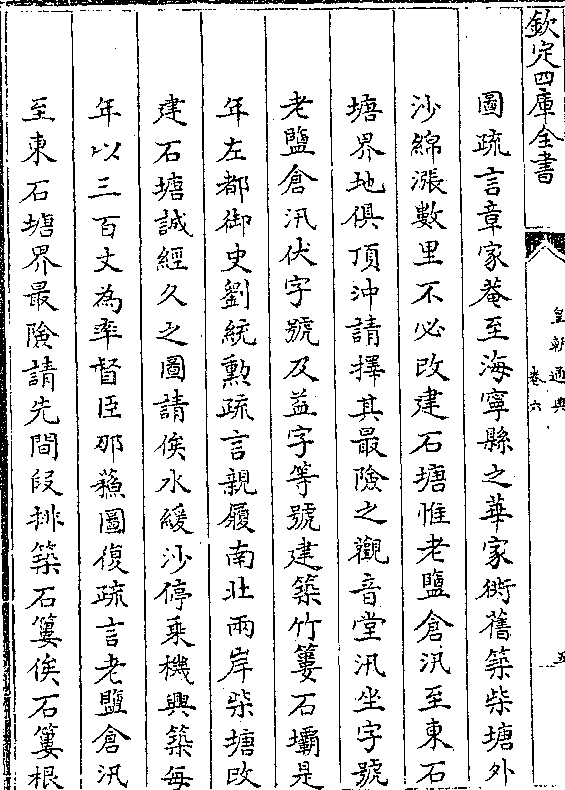 欽定四庫全書
皇朝通典
卷六
五
圖疏言章家菴至海寧縣之華家衖舊築柴塘外
沙綿漲數里不必改建石塘惟老鹽倉汛至東石
塘界地俱頂沖請擇其最險之觀音堂汛坐字號
老鹽倉汛伏字號及益字等號建築竹簍石壩是
年左都御史劉統勲疏言親履南北兩岸柴塘改
建石塘誠經久之圖請俟水緩沙停乘機興築每
年以三百丈為率督臣那蘓圖復疏言老鹽倉汛
至東石塘界最險請先間段排築石簍俟石簍根